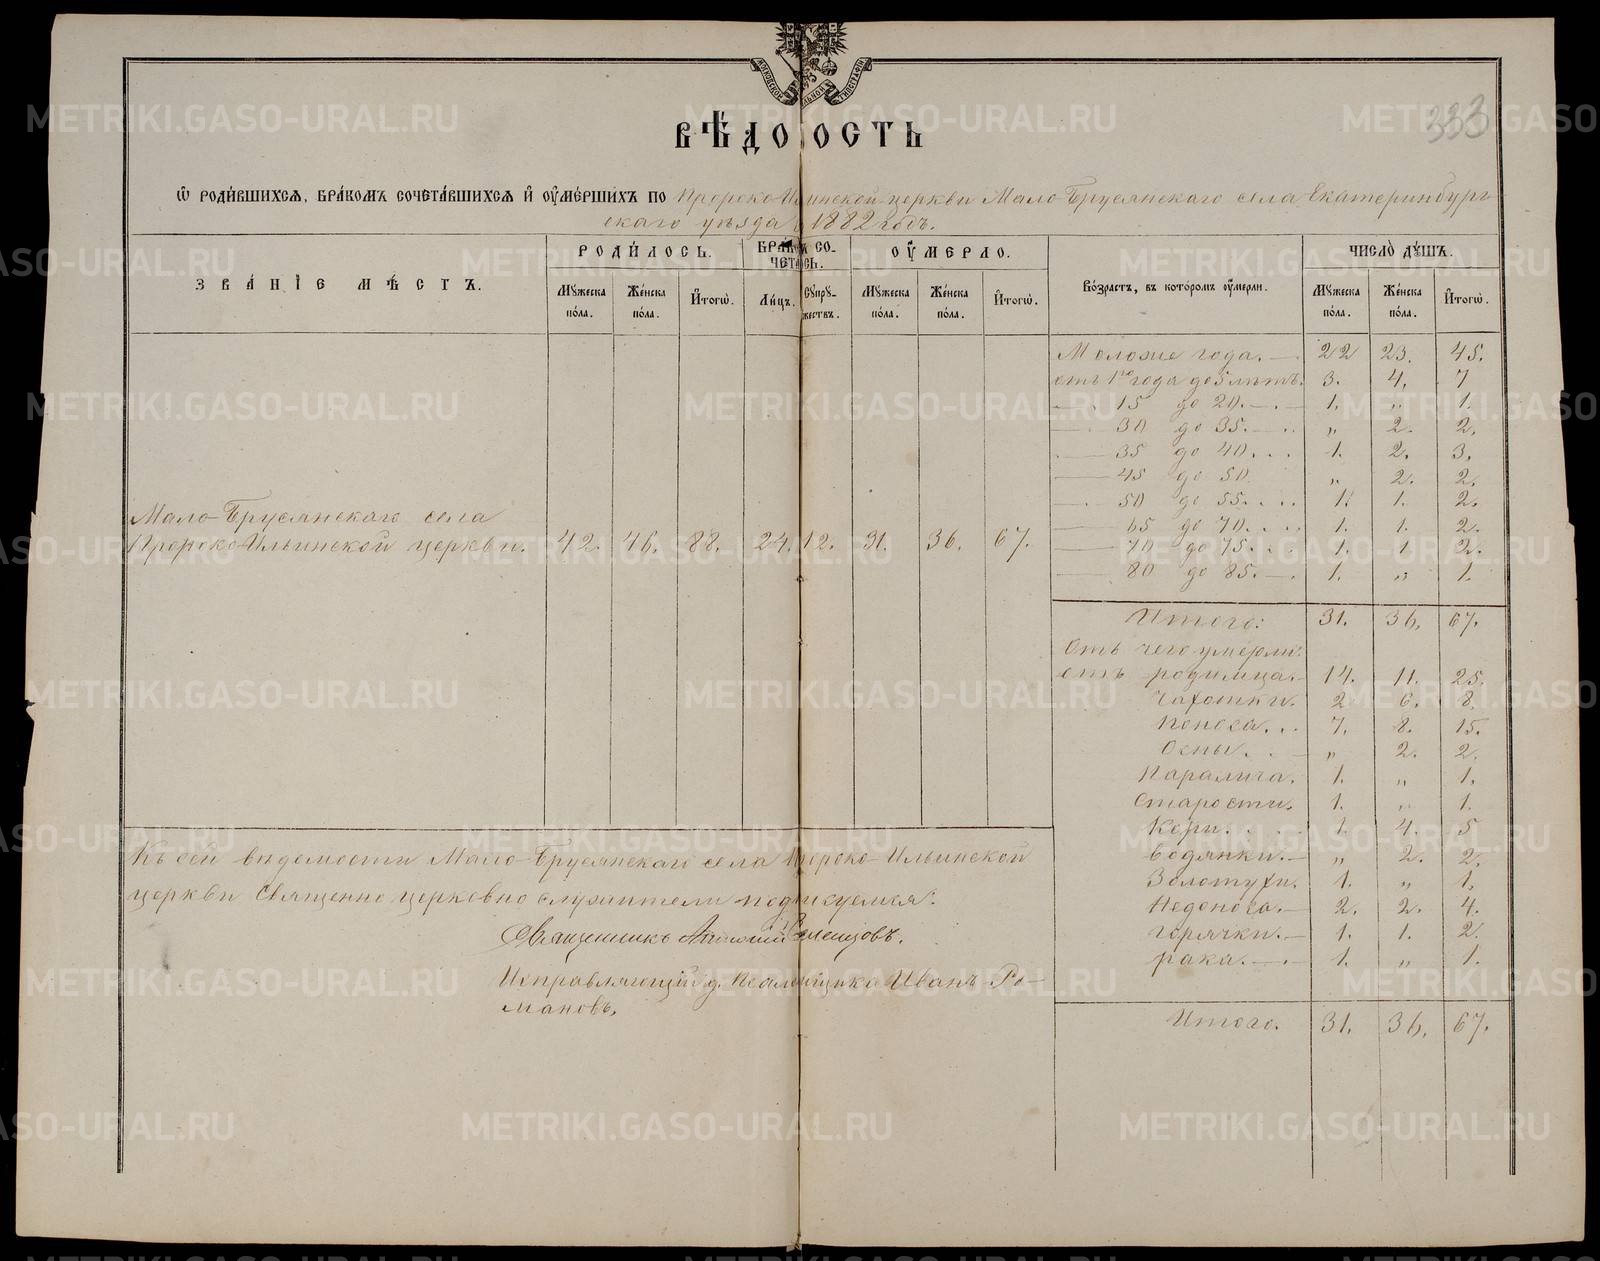 333
ВѢДОМОСТЬ
Ѡ РОДИВШИХСЯ, БРАКОМЪ СОЧЕТАВШИХСЯ И ОУМЕРШИХЪ ПО Пророко-Ильинской церкви Мало-Брусянскаго села Екатеринбург-
скаго уѣзда 1882 годъ.
ЗВАНІЕ МѢСТЪ. РОДИЛОСЬ. БРАКОМ СО-ЧЕТАСЬ. ОУМЕРЛО. Возрастъ, въ которомъ оумерли. ЧИСЛО ДУШЪ.
Мужеска пола. Женска пола. Итогѡ. Лицъ. Супру-жествъ. Мужеска пола. Женска пола. Итогѡ. Мужеска пола. Женска пола. Итогѡ.
Моложе года. 22 23. 45.
отъ 1го года до 5 лѣтъ. 3. 4. 7
15 до 20. 1. „ 1.
30 до 35. „ 2. 2.
35 до 40. 1. 2. 3.
45 до 50 „ 2. 2.
50 до 55. 1. 1. 2.
65 до 70. 1. 1. 2.
70 до 75. 1. 1. 2.
80 до 85. 1. „ 1.
Итого: 31. 36. 67.
Мало-Брусянскаго села
Пророко-Ильинской церкви. 42. 46. 88. 24. 12. 31. 36. 67.
Отъ чего умерли:
отъ родимца. 14. 11. 25.
Чахотки. 2 6. 8.
Поноса. 7. 8. 15.
Оспы. „ 2. 2.
Паралича. 1. „ 1.
Старости. 1. „ 1.
Кори. 1. 4. 5
Водянки. „ 2. 2.
Золотухи. 1. „ 1.
Недоноса. 2. 2. 4.
горячки. 1. 1. 2.
рака. 1. „ 1.
Итого. 31. 36. 67.
Къ сей вѣдомости Мало-Брусянскаго села Пророко-Ильинской
церкви Священно церковно служители подписуемся:
Священникъ
Исправляющій д. Псаломщика Иванъ Ро-
мановъ.
METRIKI.GASO-URAL.RU